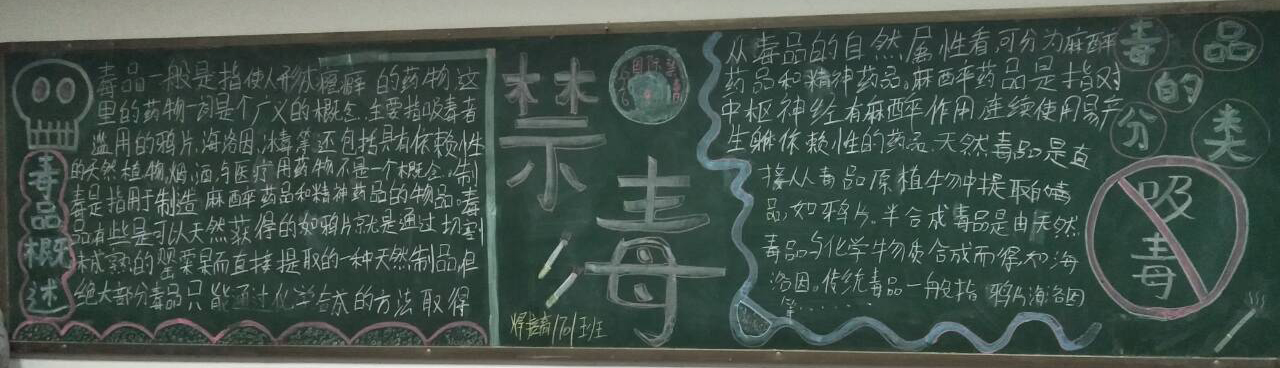 毒品概述
毒品一般是指使人形成瘾癖的药物,这
里的药物一词是个广义的概念.主要指吸毒者
滥用的鸦片,海洛因,冰毒等.还包括具有依赖性
的天然植物.烟.酒.与医疗用药物不是一个概念.制
毒是指用于制造麻醉药品和精神药品的物品。毒
品有些是可以天然获得的如鸦片就是通过切割
未成熟的罂粟果而直接提取的一种天然制品.但
绝大部分毒品只能通过化学合成的方法取得
禁毒
国际禁毒
1701班
从毒品的自然属性看,可分为麻醉
药品和精神药品.麻醉药品是指对
中枢神经有麻醉作用,连续使用易产
生 依赖性的药品.天然毒品是直
接从毒品原植物中提取的毒
品,如鸦片。半合成毒品是由天然
毒品与化学物质合成而得如海
洛因。传统毒品一般指鸦片海洛因
等......
毒品
的
分类
吸毒